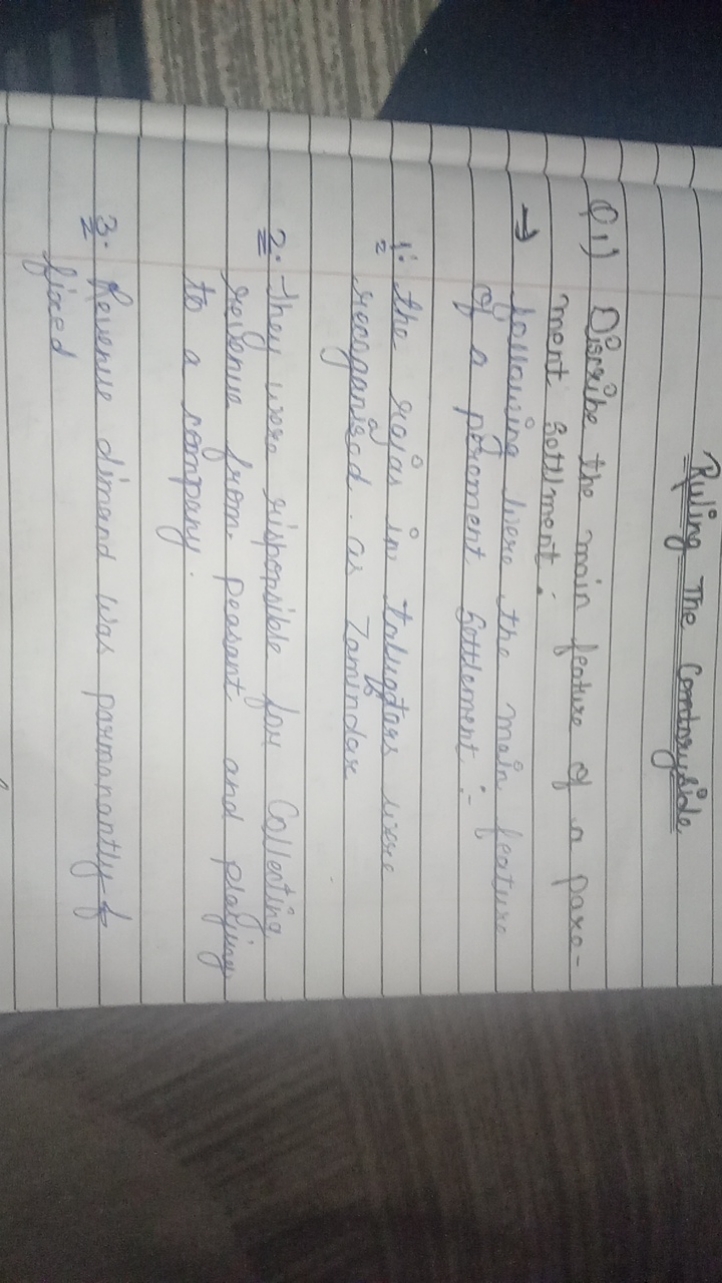 Ruling The Contoryside
Q 1) Discribe the main feature of a paro-
ment Sottlment.
→ following were the main feature
of a poroment Sottlement :-
1. the rajas in taluqtars were
recorganised as Zamindar
2. They were risponsible for Collecting
revenue from peasant and playing
to a company.
3. Revenue dimand was parmanantly f
fixed